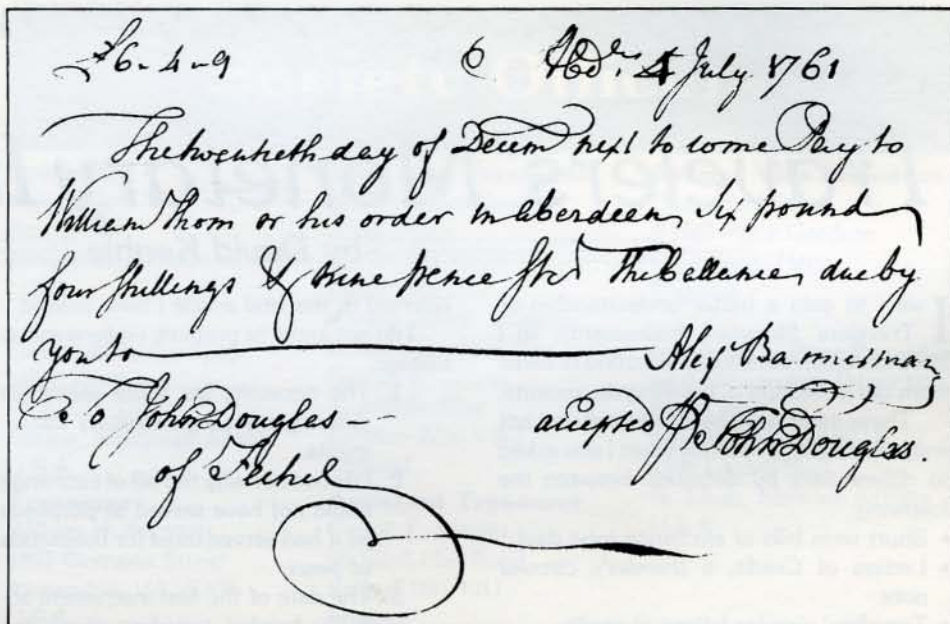 £6-4-9 Abdn 4 July 1761
The twentieth day of Decem next to come Pay to
William Thom or his order in Aberdeen Six pound
four Shillings & nine pence Ster The ballence due by
you to Alex Bannerman
To John Douglas
of Fechel
accepted John Douglas